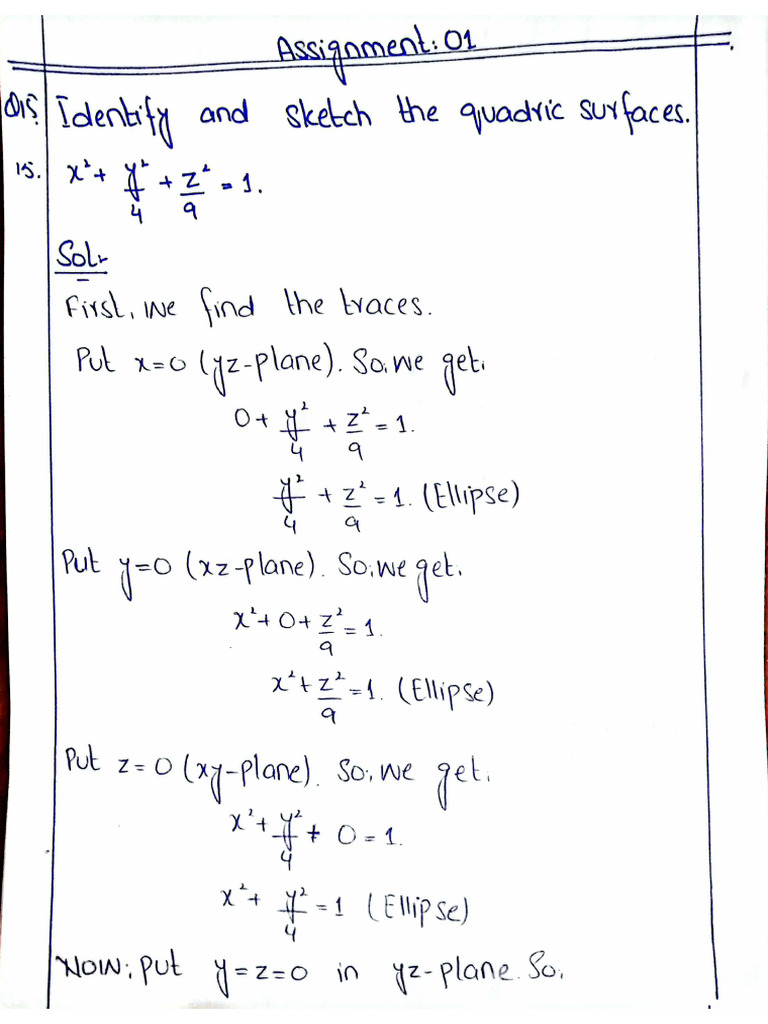 Assignment: 01
Q15. Identify and sketch the quadric surfaces.
15. x² + y²/4 + z²/9 = 1.
Sol:-
First, we find the traces.
Put x=0 (yz-plane). So, we get,
0 + y²/4 + z²/9 = 1.
y²/4 + z²/9 = 1. (Ellipse)
Put y=0 (xz-plane). So, we get,
x² + 0 + z²/9 = 1.
x² + z²/9 = 1. (Ellipse)
Put z=0 (xy-plane). So, we get,
x² + y²/4 + 0 = 1.
x² + y²/4 = 1 (Ellipse)
Now, put y=z=0 in yz-plane. So,